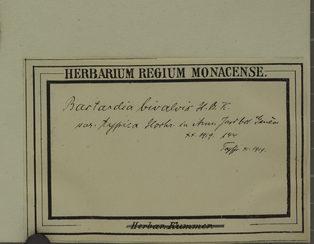 HERBARIUM REGIUM MONACENSE.
Bastardia bivalvis H.B.K.
var. typica Hochr. in Ann. Jard. bot. Genève
XI. 1914.
Herbar. Kummer.